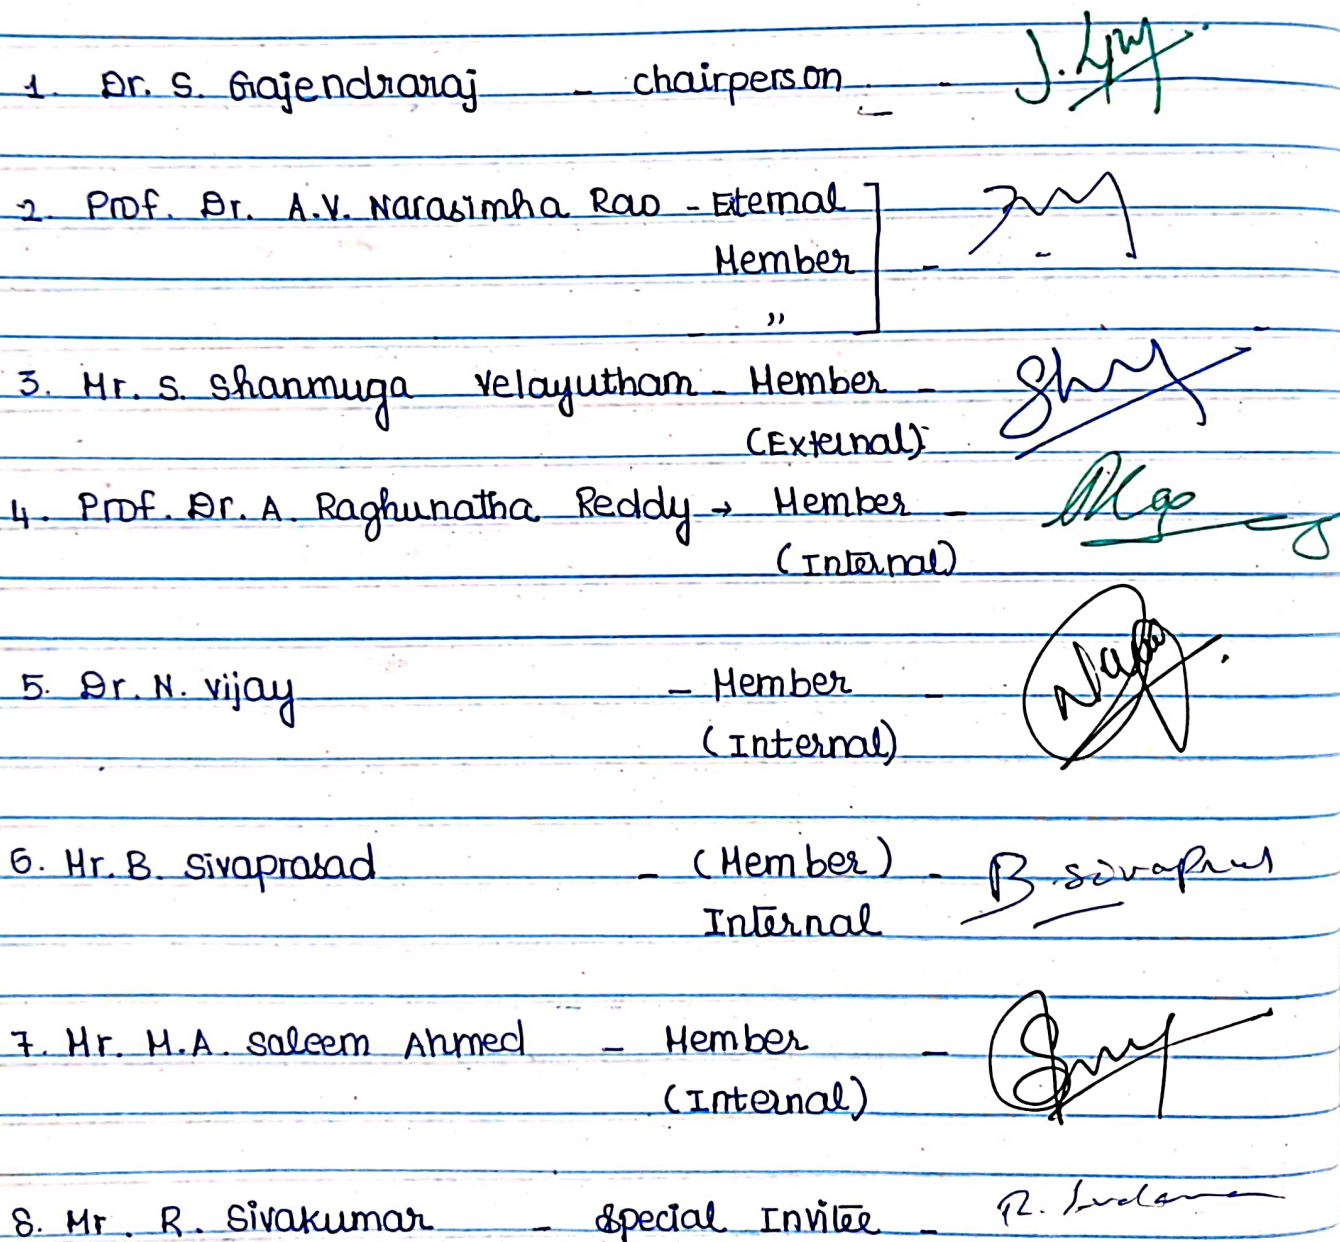 1. Dr. S. Gajendraraj - chairperson -
2. Prof. Dr. A.V. Narasimha Rao - Eternal
Member -
"
3. Mr. S. Shanmuga Velayutham - Member -
(External)
4. Prof. Dr. A. Raghunatha Reddy → Member -
(Internal)
5. Dr. N. Vijay - Member -
(Internal)
6. Mr. B. Sivaprasad - (Member) - B. Sivaprasad
Internal
7. Mr. M.A. Saleem Ahmed - Member -
(Internal)
8. Mr. R. Sivakumar - Special Invitee -